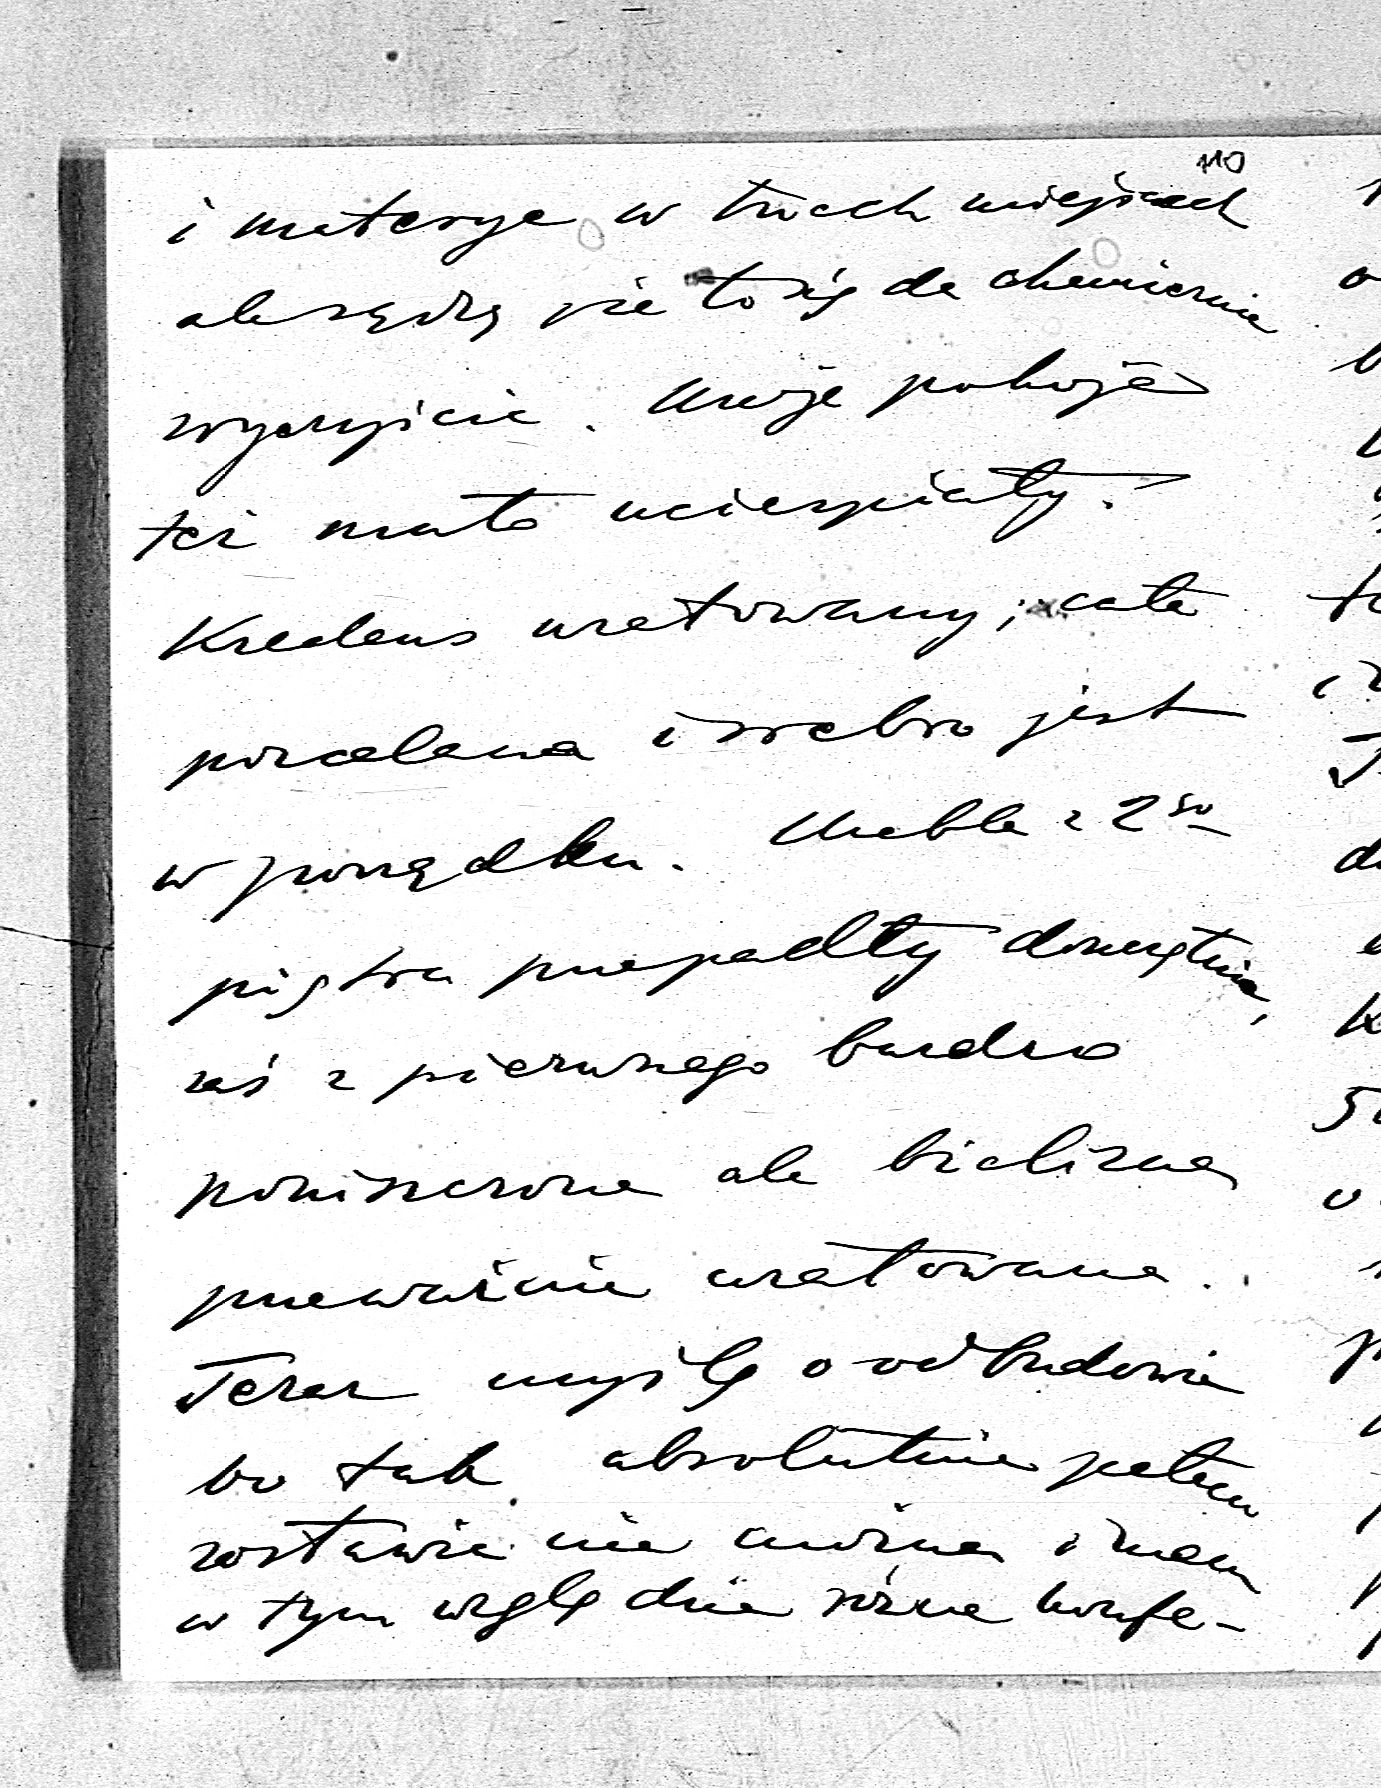 110
i materye w trzech miejscach
ale sądzę że to się da chemicznie
wyczyścić. Moje pokoje
też mało ucierpiały.
Kredens uratowany; cała
porcelana i srebro jest
w porządku. Meble z 2go
piętra przepadły doszczętnie,
zaś z pierwszego bardzo
poniszczone ale bielizna
przeważnie uratowana.
Teraz myślę o odbudowie
bo tak absolutnie
zostawić nie można i mam
w tym względzie różne konfe-